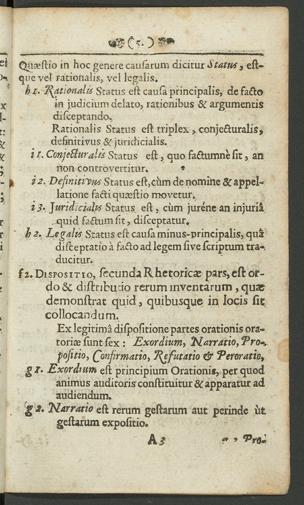 ( 5. )
Quæstio in hoc genere causarum dicitur Status, est-
que vel rationalis, vel legalis.
h 1. Rationalis Status est causa principalis, de facto
in judicium delato, rationibus & argumentis
disceptando.
Rationalis Status est triplex, conjecturalis,
definitivus & juridicialis.
i 1. Conjecturalis Status est, quo factumnè sit, an
non controvertitur.
i 2. Definitivus Status est, cùm de nomine & appel-
latione facti quæstio movetur.
i 3. Juridicialis Status est, cùm juréne an injuriâ
quid factum sit, disceptatur.
h 2. Legalis Status est causa minus-principalis, quâ
disceptatio à facto ad legem sive scriptum tra-
ducitur.
f 2. DISPOSITIO, secunda Rhetoricæ pars, est or-
do & distributio rerum inventarum, quæ
demonstrat quid, quibusque in locis sit
collocandum.
Ex legitimâ dispositione partes orationis ora-
toriæ sunt sex: Exordium, Narratio, Pro-
positio, Confirmatio, Refutatio & Peroratio,
g 1. Exordium est principium Orationis, per quod
animus auditoris constituitur & apparatur ad
audiendum.
g 2. Narratio est rerum gestarum aut perinde ùt
gestarum expositio.
A 3
Pro-